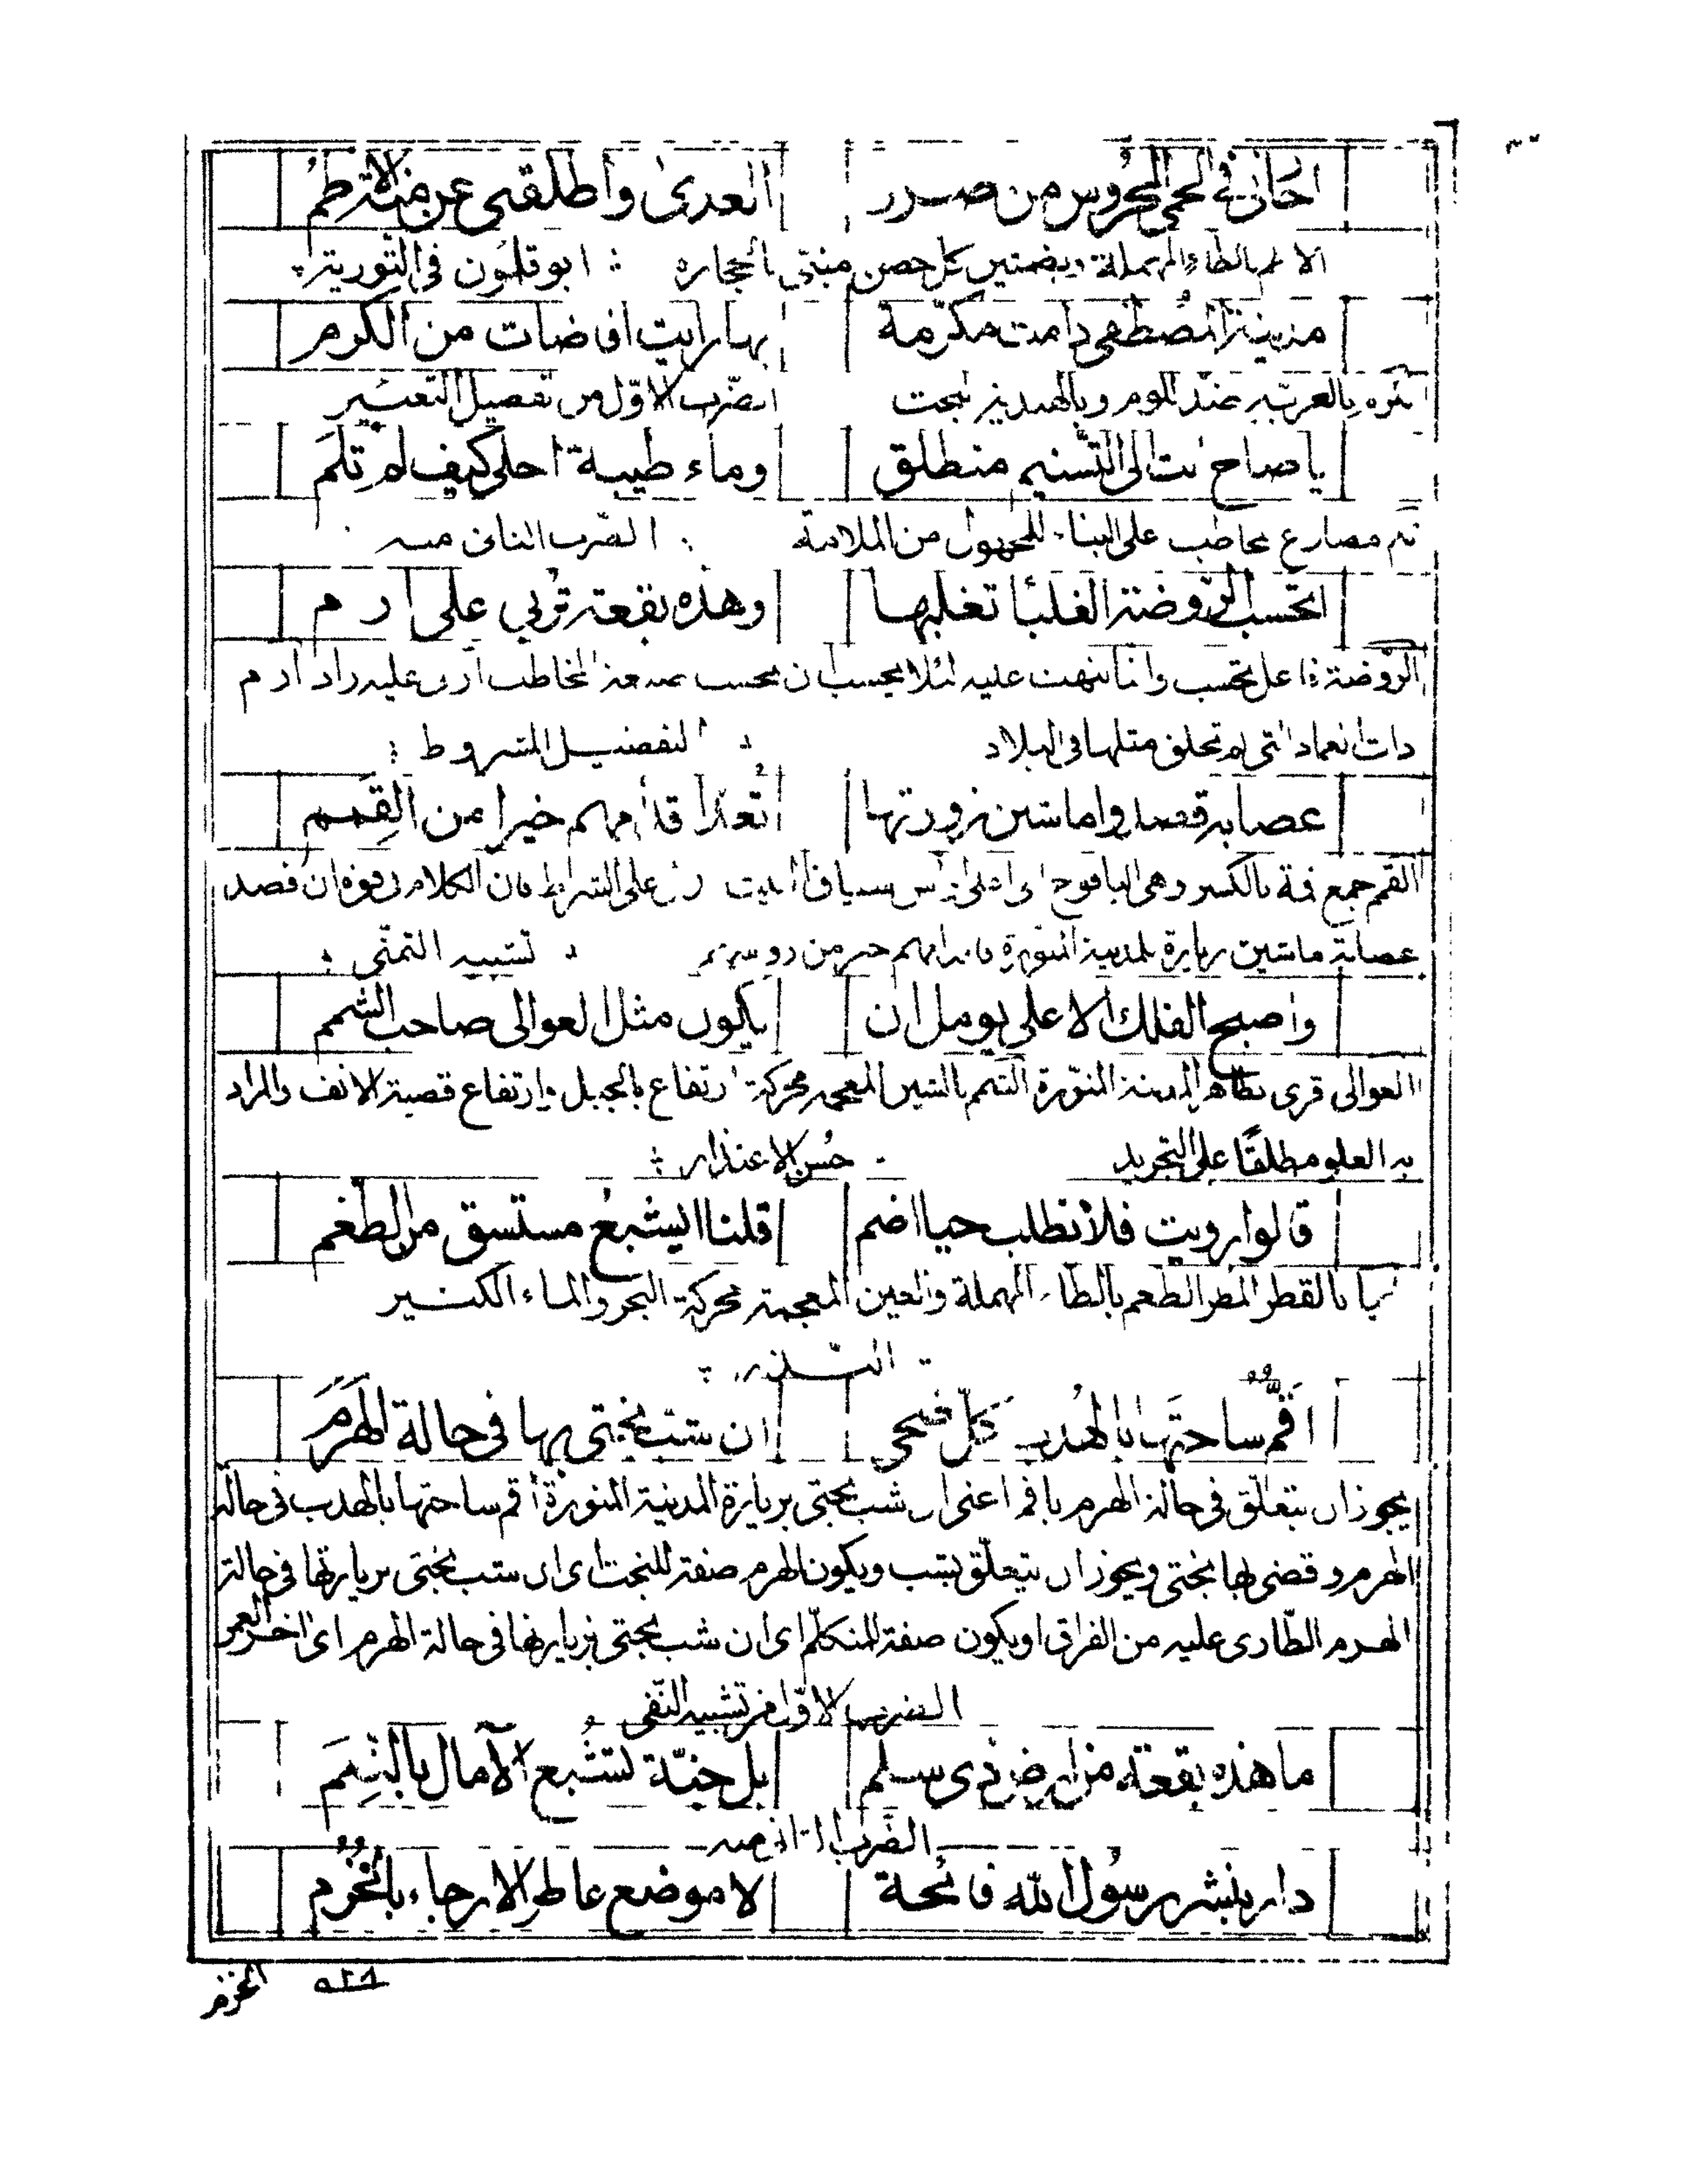 احانى فى الحمى المحروس من ضرر العدى واطلقنى عن منة الاطم
الاطم بالطاء المهملة وبضمتين كل حصن مبنى بالحجارة ابو قلمون فى التورية
مدينة المصطفى دامت مكرمة بها رايت افاضات من الكرم
كره بالعربية ضد اللوم وبالهندية الضرب الاول من تفصيل التعبير
يا صاح انت الى التسنيم منطلق وماء طيبة احلى كيف لم تلم
تلم مضارع مخاطب على البناء للمجهول من الملامة الضرب الثانى منه
اتحسب الروضة الغلبا تغلبها وهذه بقعة تربى على ارم
الروضة فاعل تحسب وانما نبهت عليه لئلا يحسب ان تحسب صيغة المخاطب اربى عليه زاد ارم
ذات العماد التى لم تخلق مثلها فى البلاد التفضيل المشروط
عصابة قصدوا ماشين زورتها تعد اقدامهم خيرا من القمم
القمم جمع قمة بالكسر وهى اليافوخ اى اعلى الراس على الشرط فان الكلام فى قوة ان قصد
عصابة ماشين زيارة المدينة المنورة فاقدامهم خير من رؤسهم تشبيه التمنى
واصبح الفلك الاعلى يومل ان يكون مثل العوالى صاحب الشمم
العوالى قرى بظاهر المدينة المنورة الشمم بالشين المعجمة محركة ارتفاع بالجبل وارتفاع قصبة الانف والمراد
به العلو مطلقا على التجريد حسن الاعتذار
قالوا رويت فلا تطلب حيا اضم قلنا ايشبع مستسق من الطغم
بالقطر المطر الطغم بالطاء المهملة والغين المعجمة محركة البحر والماء الكثير
النذر
اقم ساحتها بالهدب كل ضحى ان شب بختى بها فى حالة الهرم
يجوز ان يتعلق فى حالة الهرم باقم اعنى ان شب بختى بزيارة المدينة المنورة اقم ساحتها بالهدب فى حالة
الهرم وقضى بها بختى ويجوز ان يتعلق بشب ويكون الهرم صفة للبخت اى ان شب بختى بزيارتها فى حالة
الهرم الطارى عليه من الفراق او يكون صفة للمتكلم اى ان شب بختى بزيارتها فى حالة الهرم اى اخر العمر
الضرب الاول من تشبيه النفى
ما هذه بقعة من ارض ذى سلم بل جنة تشبع الآمال بالنعم
الضرب الثانى منه
دار بنشر رسول الله فائحة لا موضع عاطر الارجاء بالخزم
الخزم